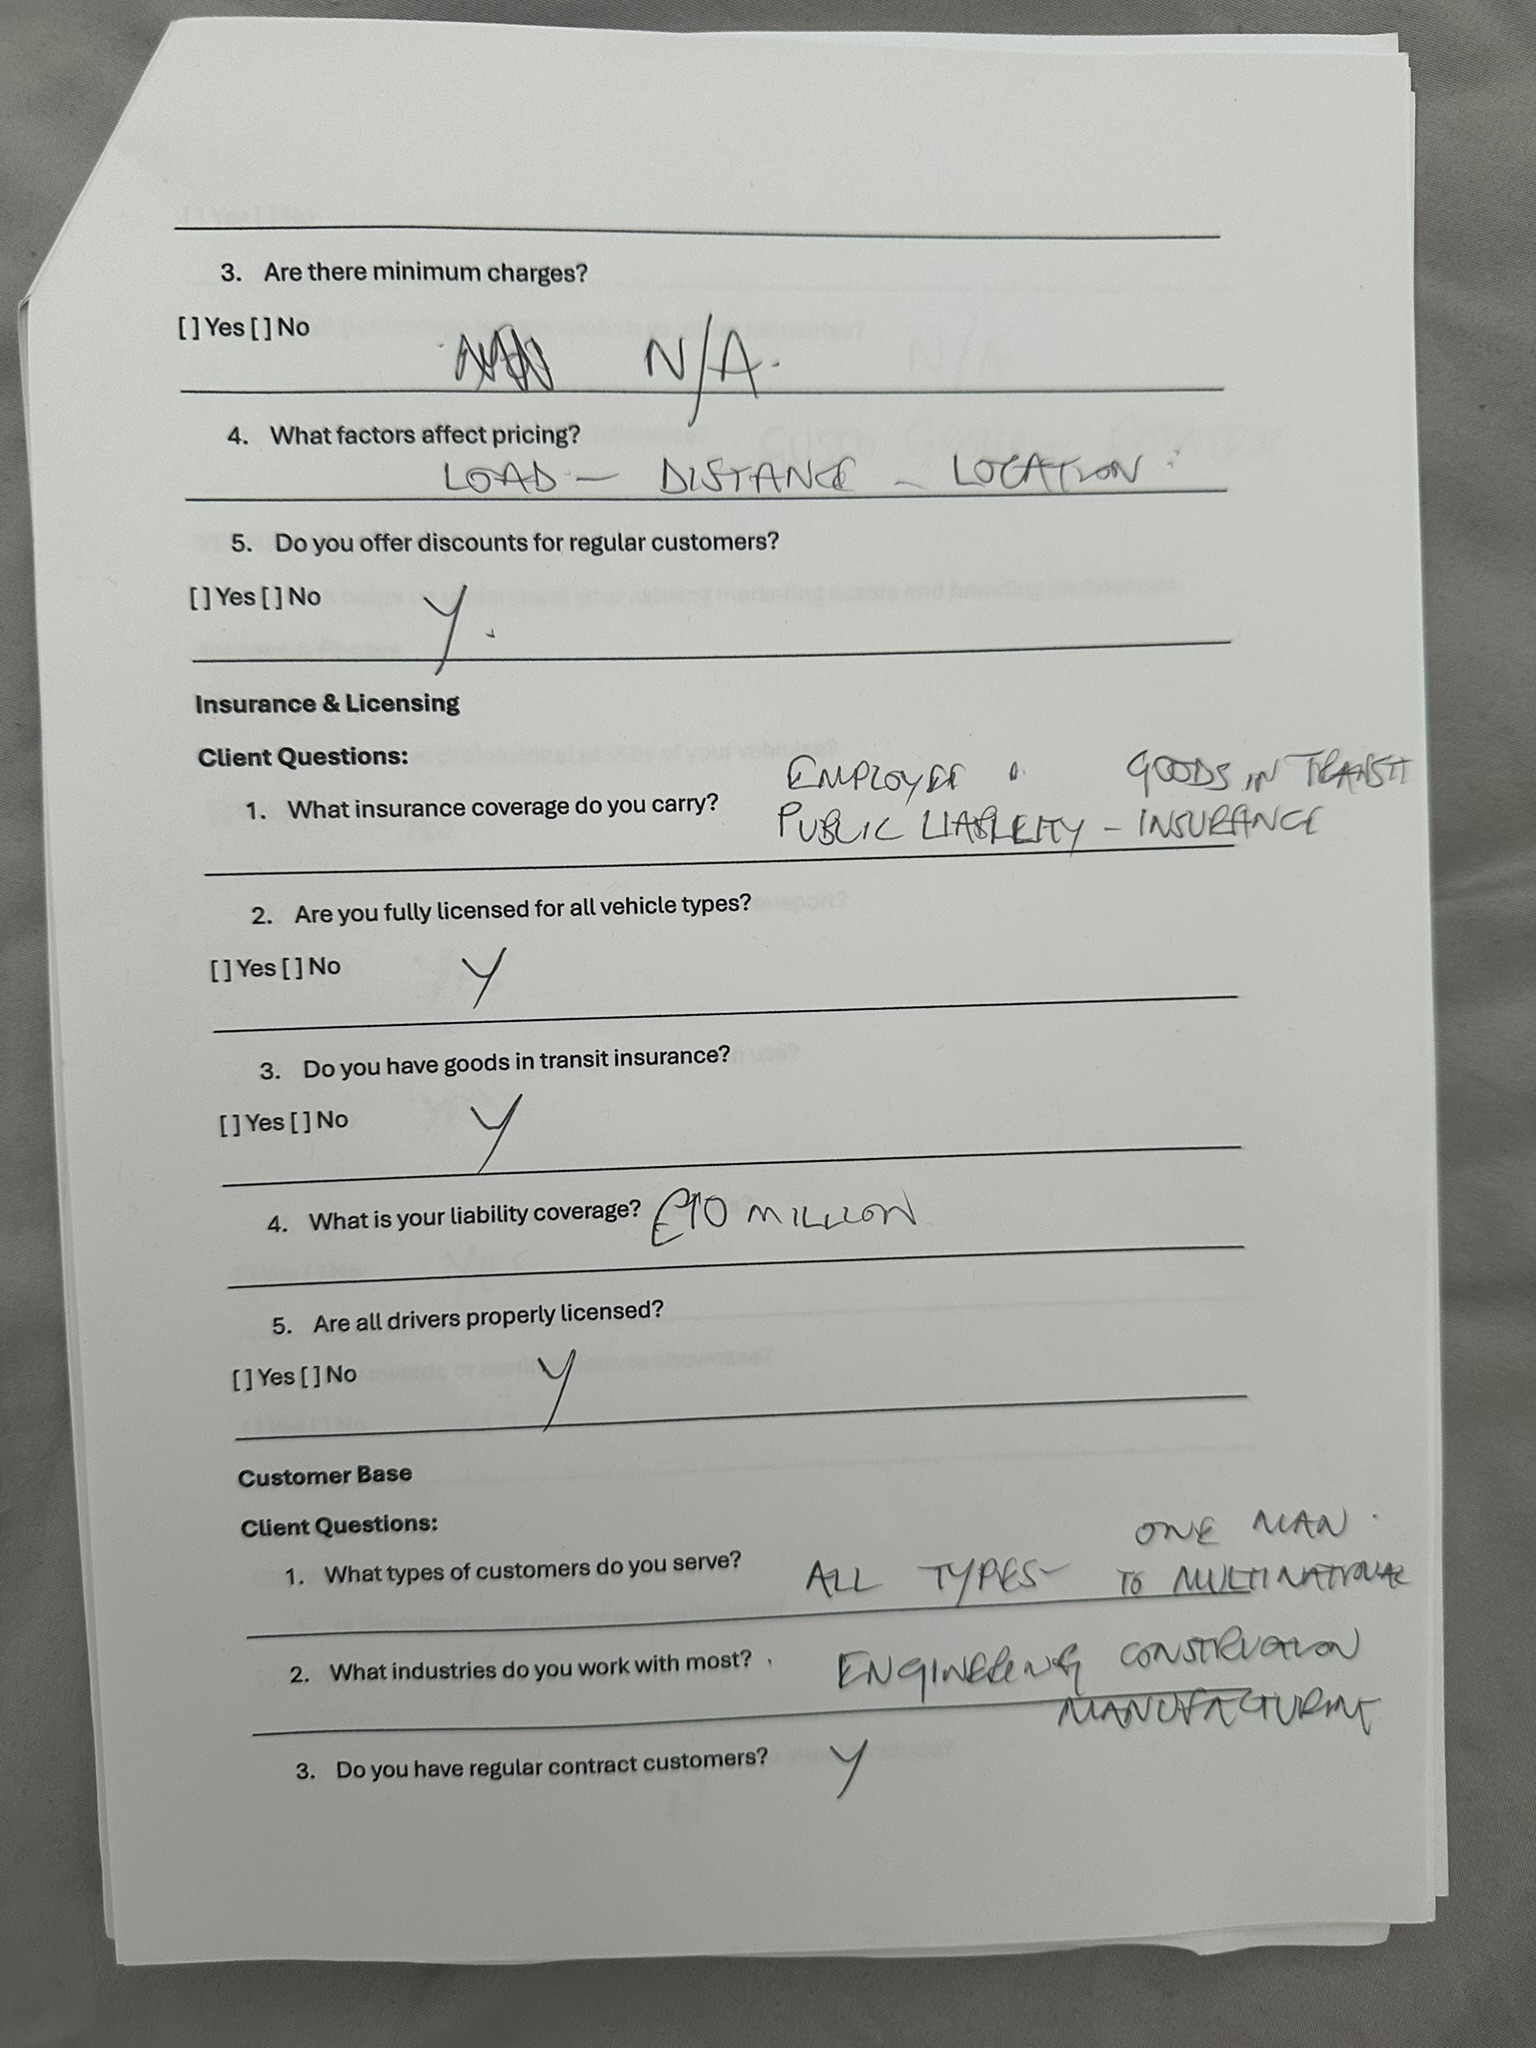 3. Are there minimum charges?
[ ] Yes [ ] No
N/A.
4. What factors affect pricing?
LOAD — DISTANCE - LOCATION
5. Do you offer discounts for regular customers?
[ ] Yes [ ] No
Y.
Insurance & Licensing
Client Questions:
1. What insurance coverage do you carry?
EMPLOYEE GOODS IN TRANSIT
PUBLIC LIABILITY - INSURANCE
2. Are you fully licensed for all vehicle types?
[ ] Yes [ ] No
Y
3. Do you have goods in transit insurance?
[ ] Yes [ ] No
Y
4. What is your liability coverage? £10 MILLION
5. Are all drivers properly licensed?
[ ] Yes [ ] No
Y
Customer Base
Client Questions:
ONE MAN
1. What types of customers do you serve? ALL TYPES - TO MULTINATIONAL
2. What industries do you work with most? ENGINEERING CONSTRUCTION
MANUFACTURING
3. Do you have regular contract customers? Y